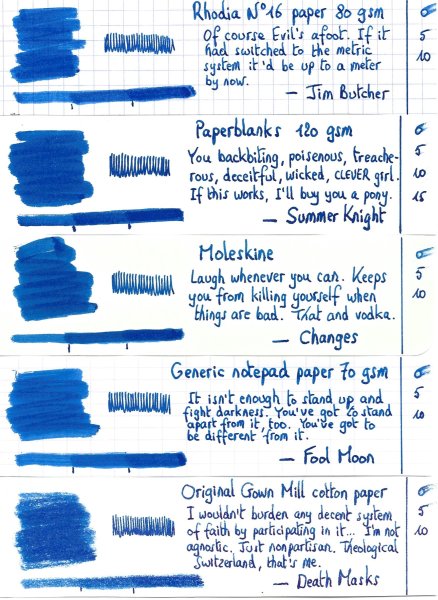 Rhodia N°16 paper 80 gsm
Of course Evil's afoot. If it
had switched to the metric
system it'd be up to a meter
by now.
— Jim Butcher
5
10
Paperblanks 120 gsm
You backbiting, poisenous, treache-
rous, deceitful, wicked, CLEVER girl.
If this works, I'll buy you a pony.
— Summer Knight
5
10
15
Moleskine
Laugh whenever you can. Keeps
you from killing yourself when
things are bad. That and vodka.
— Changes
5
10
Generic notepad paper 70 gsm
It isn't enough to stand up and
fight darkness. You've got to stand
apart from it, too. You've got to
be different from it.
— Fool Moon
5
10
Original Crown Mill cotton paper
I wouldn't burden any decent system
of faith by participating in it... I'm not
agnostic. Just nonpartisan. Theological
Switzerland, that's me.
— Death Masks
5
10